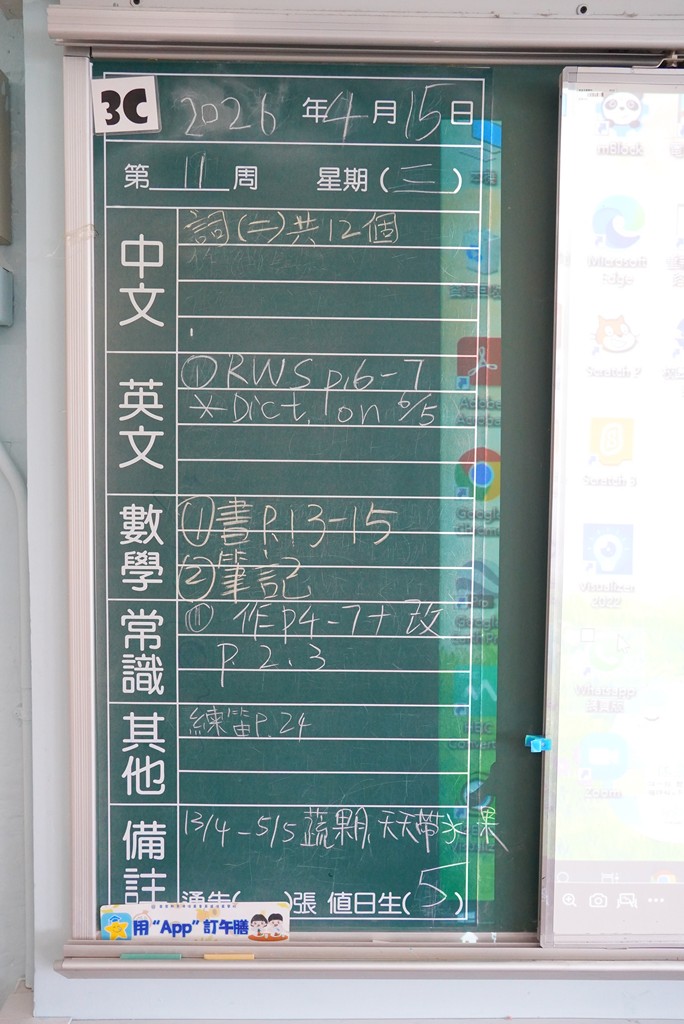 3C
2026 年 4 月 15 日
第 11 周 星期 (三)
中文
詞(二)共12個
英文
① RWS p.6-7
* Dict. on 6/5
數學
① 書 P.13-15
② 筆記
常識
① 作 p4-7+改
p.2,3
其他
練笛 P.24
備註
13/4-5/5 蔬果月,天天帶水果
通告( )張 值日生(5)
用“App”訂午膳
mBlock
Microsoft Edge
Scratch 3
Zoom